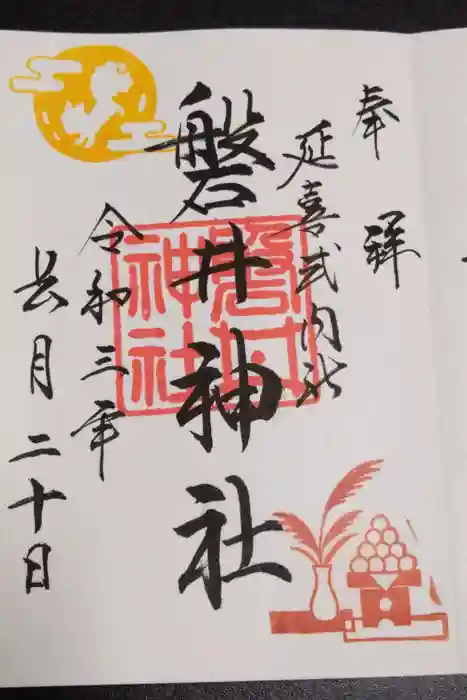 奉拝
延喜式内社
磐井神社
磐井
神社
令和三年
長月二十日